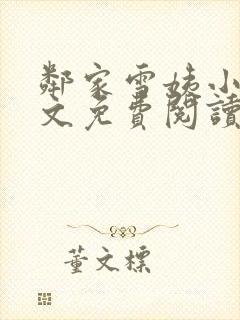 鄰家雪姨小
文免費閱讀
董文標